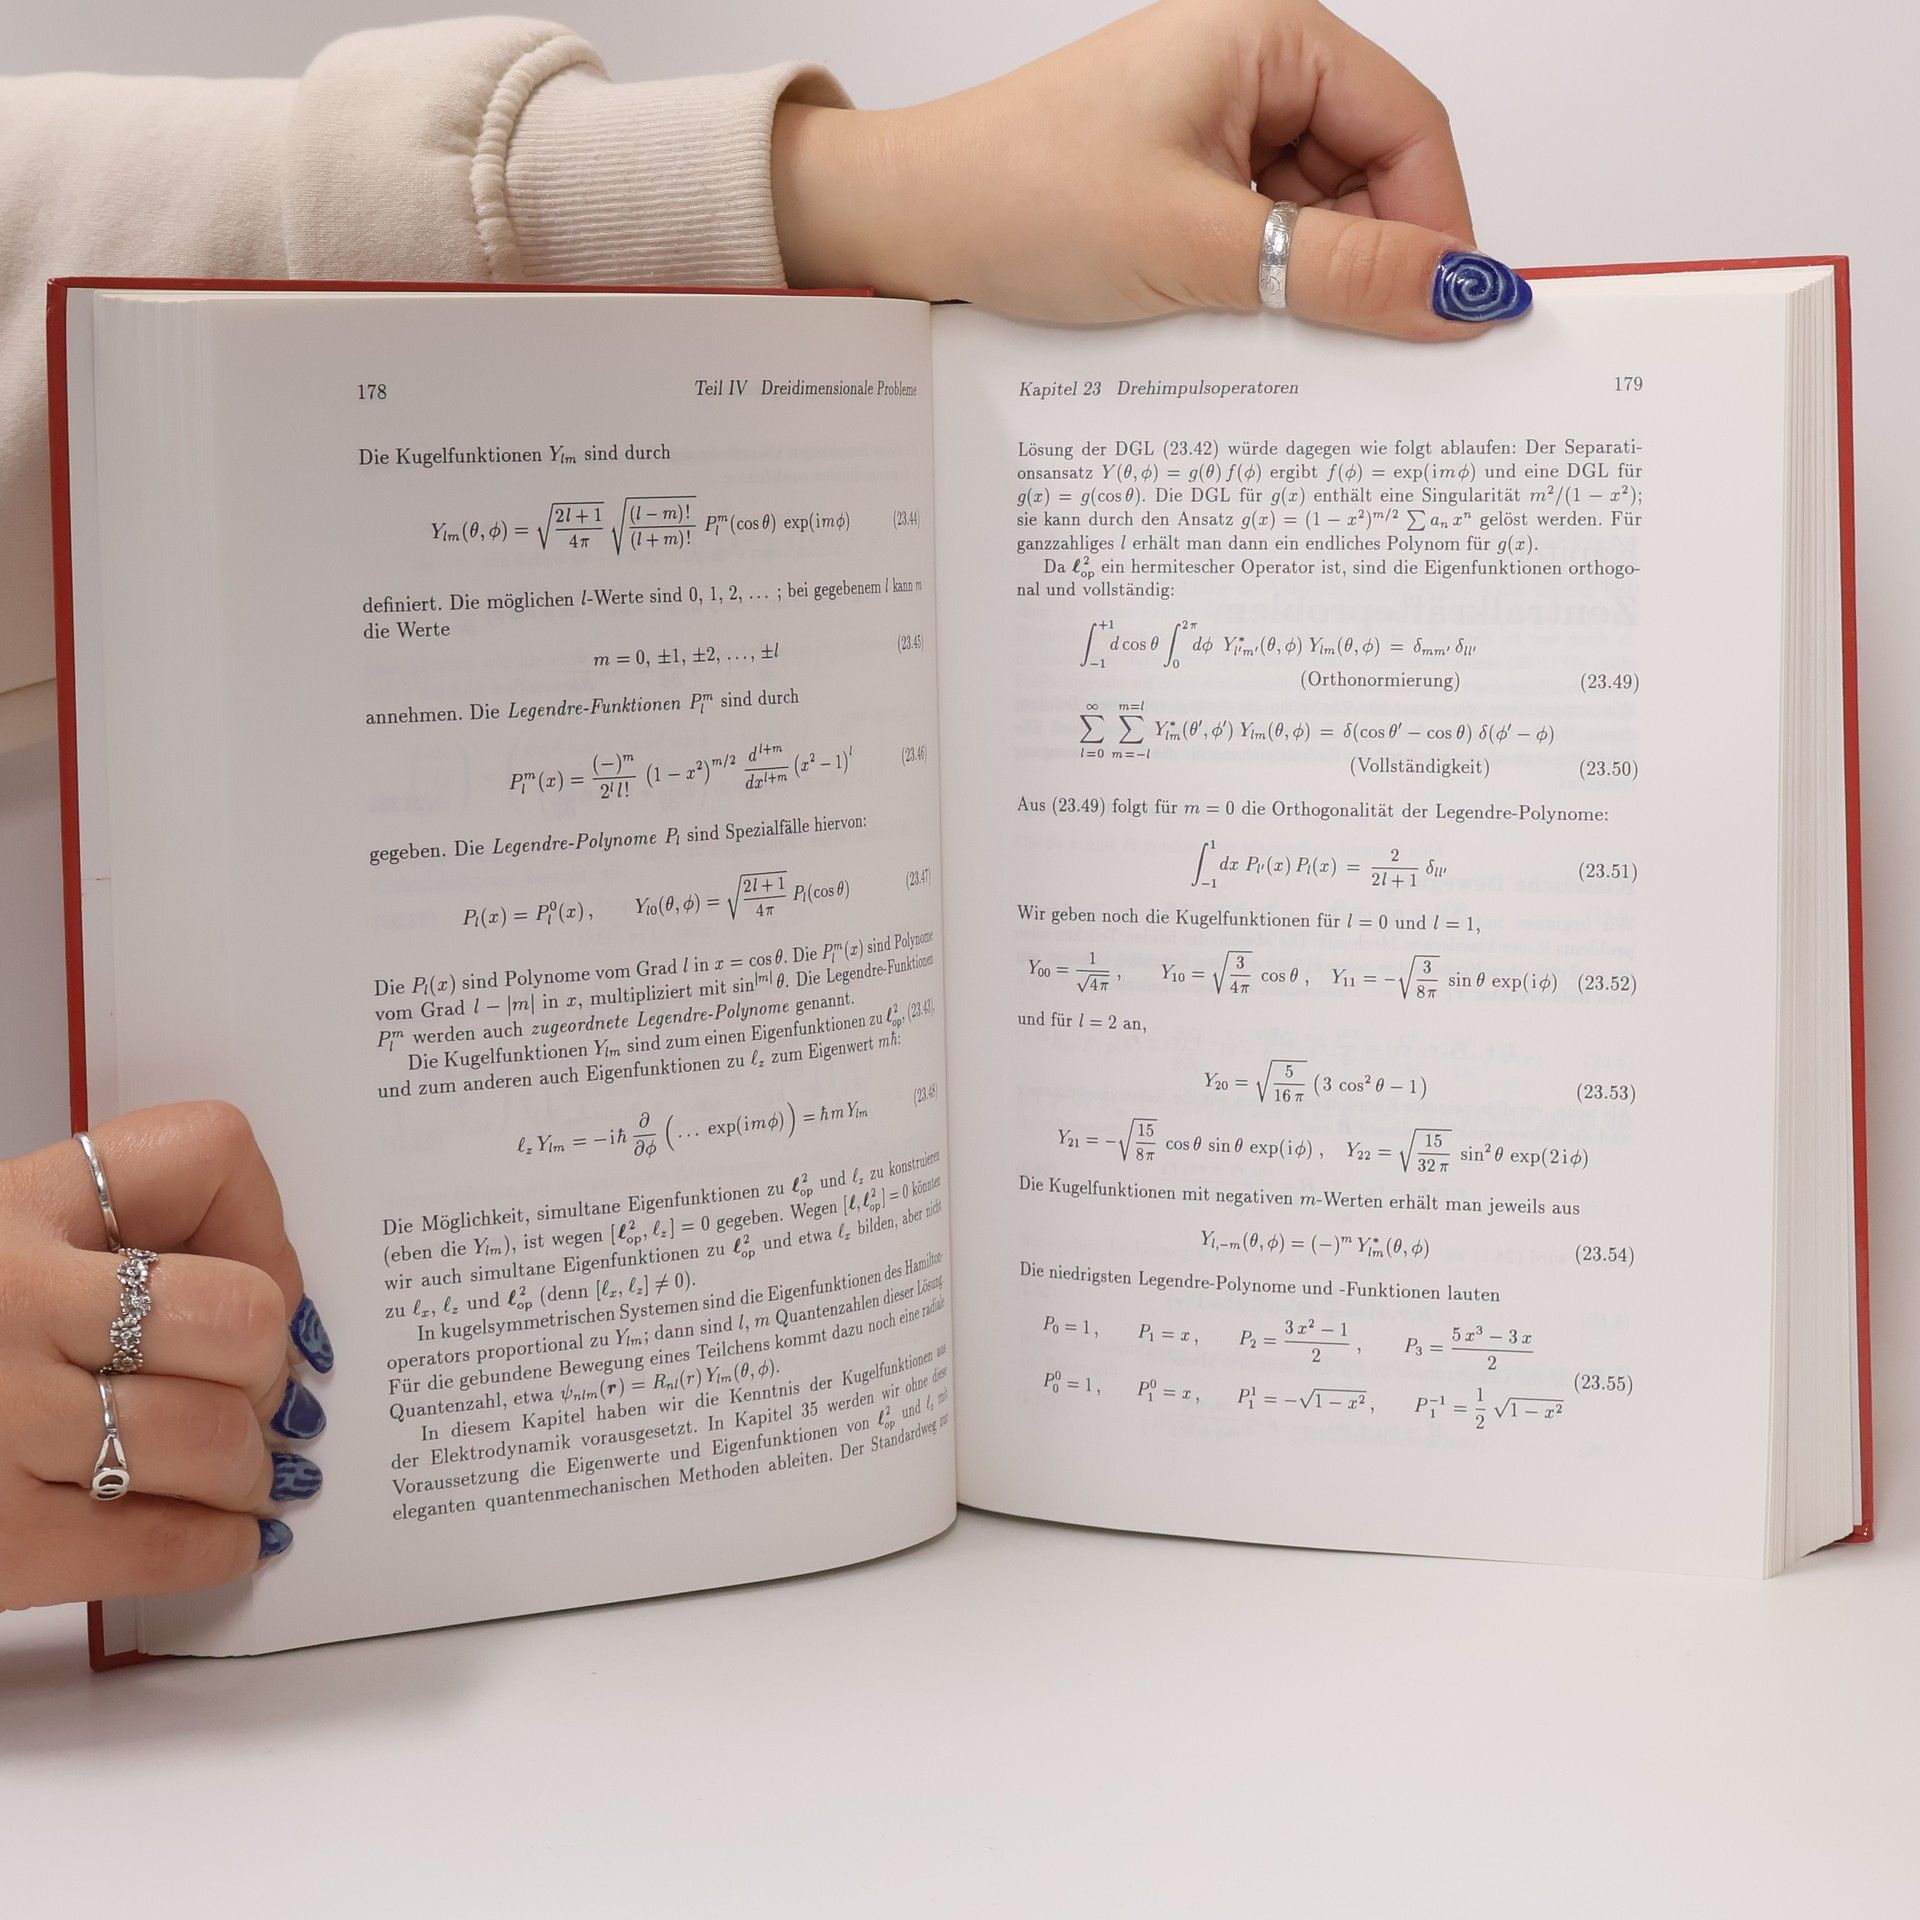 178 Teil IV Dreidimensionale Probleme
Die Kugelfunktionen Yₗₘ sind durch
Yₗₘ(θ, ϕ) = √((2l + 1)/(4π)) √((l − m)!/(l + m)!) Pₗᵐ(cos θ) exp(imϕ) (23.44)
definiert. Die möglichen l-Werte sind 0, 1, 2, ... ; bei gegebenem l kann m
die Werte
m = 0, ±1, ±2, ..., ±l (23.45)
annehmen. Die Legendre-Funktionen Pₗᵐ sind durch
Pₗᵐ(x) = ((−)ᵐ/(2ˡ l!)) (1 − x²)^(m/2) (d^(l+m)/dx^(l+m)) (x² − 1)ˡ (23.46)
gegeben. Die Legendre-Polynome Pₗ sind Spezialfälle hiervon:
Pₗ(x) = Pₗ⁰(x) , Yₗ₀(θ, ϕ) = √((2l + 1)/(4π)) Pₗ(cos θ) (23.47)
Die Pₗ(x) sind Polynome vom Grad l in x = cos θ. Die Pₗᵐ(x) sind Polynome
vom Grad l − |m| in x, multipliziert mit sin^|m| θ. Die Legendre-Funktionen
Pₗᵐ werden auch zugeordnete Legendre-Polynome genannt.
Die Kugelfunktionen Yₗₘ sind zum einen Eigenfunktionen zu ℓ²op, (23.43),
und zum anderen auch Eigenfunktionen zu ℓ_z zum Eigenwert mℏ:
ℓ_z Yₗₘ = −iℏ ∂/∂ϕ (... exp(imϕ)) = ℏm Yₗₘ (23.48)
Die Möglichkeit, simultane Eigenfunktionen zu ℓ²op und ℓ_z zu konstruieren
(eben die Yₗₘ), ist wegen [ℓ²op, ℓ_z] = 0 gegeben. Wegen [ℓ, ℓ²op] = 0 könnten
wir auch simultane Eigenfunktionen zu ℓ²op und etwa ℓₓ bilden, aber nicht
zu ℓₓ, ℓ_z und ℓ²op (denn [ℓₓ, ℓ_z] ≠ 0).
In kugelsymmetrischen Systemen sind die Eigenfunktionen des Hamilton-
operators proportional zu Yₗₘ; dann sind l, m Quantenzahlen dieser Lösung.
Für die gebundene Bewegung eines Teilchens kommt dazu noch eine radiale
Quantenzahl, etwa ψₙₗₘ(r) = Rₙₗ(r) Yₗₘ(θ, ϕ).
In diesem Kapitel haben wir die Kenntnis der Kugelfunktionen aus
der Elektrodynamik vorausgesetzt. In Kapitel 35 werden wir ohne diese
Voraussetzung die Eigenwerte und Eigenfunktionen von ℓ²op und ℓ_z mit
eleganten quantenmechanischen Methoden ableiten. Der Standardweg zur
Kapitel 23 Drehimpulsoperatoren 179
Lösung der DGL (23.42) würde dagegen wie folgt ablaufen: Der Separati-
onsansatz Y(θ, ϕ) = g(θ) f(ϕ) ergibt f(ϕ) = exp(imϕ) und eine DGL für
g(x) = g(cos θ). Die DGL für g(x) enthält eine Singularität m²/(1 − x²);
sie kann durch den Ansatz g(x) = (1 − x²)^(m/2) ∑ aₙ xⁿ gelöst werden. Für
ganzzahliges l erhält man dann ein endliches Polynom für g(x).
Da ℓ²op ein hermitescher Operator ist, sind die Eigenfunktionen orthogo-
nal und vollständig:
∫₋₁⁺¹ d cos θ ∫₀²π dϕ Y*ₗ′ₘ′(θ, ϕ) Yₗₘ(θ, ϕ) = δₘₘ′ δₗₗ′
(Orthonormierung) (23.49)
∑_(l=0)^∞ ∑_(m=−l)^(m=l) Y*ₗₘ(θ′, ϕ′) Yₗₘ(θ, ϕ) = δ(cos θ′ − cos θ) δ(ϕ′ − ϕ)
(Vollständigkeit) (23.50)
Aus (23.49) folgt für m = 0 die Orthogonalität der Legendre-Polynome:
∫₋₁¹ dx Pₗ′(x) Pₗ(x) = 2/(2l + 1) δₗₗ′ (23.51)
Wir geben noch die Kugelfunktionen für l = 0 und l = 1,
Y₀₀ = 1/√(4π) , Y₁₀ = √(3/(4π)) cos θ , Y₁₁ = −√(3/(8π)) sin θ exp(iϕ) (23.52)
und für l = 2 an,
Y₂₀ = √(5/(16π)) (3 cos² θ − 1) (23.53)
Y₂₁ = −√(15/(8π)) cos θ sin θ exp(iϕ) , Y₂₂ = √(15/(32π)) sin² θ exp(2iϕ)
Die Kugelfunktionen mit negativen m-Werten erhält man jeweils aus
Yₗ,₋ₘ(θ, ϕ) = (−)ᵐ Y*ₗₘ(θ, ϕ) (23.54)
Die niedrigsten Legendre-Polynome und -Funktionen lauten
P₀ = 1 , P₁ = x , P₂ = (3x² − 1)/2 , P₃ = (5x³ − 3x)/2
P₀⁰ = 1 , P₁⁰ = x , P₁¹ = −√(1 − x²) , P₁⁻¹ = 1/2 √(1 − x²) (23.55)